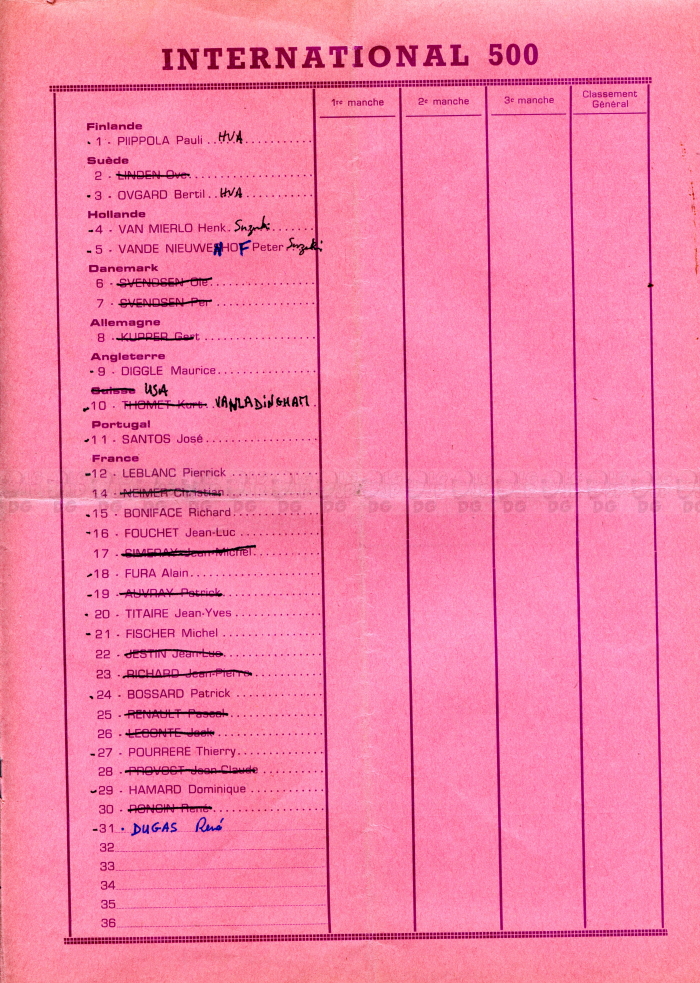 INTERNATIONAL 500
1re manche 2e manche 3e manche Classement Général
Finlande
1 - PIIPPOLA Pauli HVA
Suède
2 - LINDEN Ove
3 - OVGARD Bertil HVA
Hollande
4 - VAN MIERLO Henk Suzuki
5 - VANDE NIEUWENHOF Peter Suzuki
Danemark
6 - SVENDSEN Ole
7 - SVENDSEN Per
Allemagne
8 - KUPPER Gert
Angleterre
9 - DIGGLE Maurice
Suisse USA
10 - THOMET Kurt VANLADINGHAM
Portugal
11 - SANTOS José
France
12 - LEBLANC Pierrick
14 - NEIMER Christian
15 - BONIFACE Richard
16 - FOUCHET Jean-Luc
17 - SIMERAY Jean-Michel
18 - FURA Alain
19 - AUVRAY Patrick
20 - TITAIRE Jean-Yves
21 - FISCHER Michel
22 - JESTIN Jean-Luc
23 - RICHARD Jean-Pierre
24 - BOSSARD Patrick
25 - RENAULT Pascal
26 - LECONTE Jack
27 - POURRERE Thierry
28 - PROVOST Jean-Claude
29 - HAMARD Dominique
30 - RONCIN René
31 - DUGAS René
32
33
34
35
36